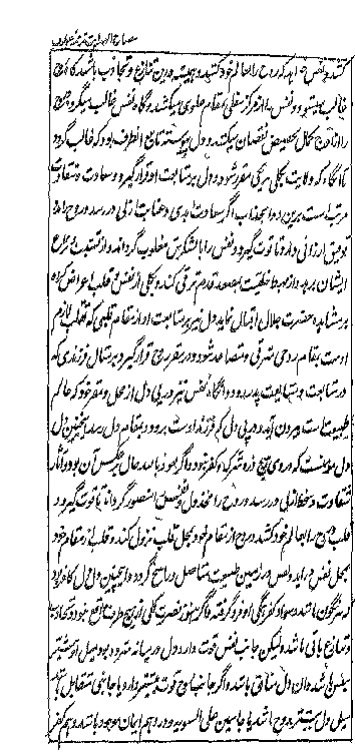 مصباح الهدایت ترجمه عوارف
کشد و نفس خواهد که روح را بعالم خود کشد و همیشه درین تنازع و تجاذب باشند گاه روح
غالب میشود و نفس را از مرکز سفلی بمقام علوی میکشد و گاه نفس غالب میگردد و روح
را از اوج کمال بحضیض نقصان میکشد و دل پیوسته تابع آن طرف بود که غالب گردد
تا آنگاه که ولایت بکلی بر یکی مقرر شود و دل بر متابعت او قرار گیرد و سعادت و شقاوت
مرتب است برین دو انجذاب اگر سعادت ابدی و عنایت ازلی در رسد و روح را مدد
توفیق ارزانی دارد تا قوت گیرد و نفس را با لشکرش مغلوب گرداند و از تشبث و نزاع
ایشان برهد و از مهبط خلقیت بمصعد قدم ترقی کند و بکلی از نفس و قلب اعراض کرده
بر مشاهده حضرت جلال اقبال نماید دل نیز بر متابعت او از مقام قلبی که تقلب لازم
اوست بمقام روحی مترقی و متصاعد شود و در مقر روح قرار گیرد بر مثال فرزندی که
در متابعت و مشایعت پدر بود و آنگاه نفس نیز در پی دل از محل و مقر خود که عالم
طبیعت است بیرون آید و در پی دل که فرزند اوست برود و بمقام دل رسد و اینچنین دل
دل مؤمنست که در وی هیچ ذره شرک و کفر نبود و اگر نعوذ بالله حال بعکس آن بود و آثار
شقاوت و ازلی در رسد و روح را مخذول و نفس را منصور گرداند تا قوت گیرد و
قلب و روح را بعالم خود کشد و روح از مقام خود بمحل قلب نزول کند و قلب از مقام خود
بمحل نفس در آید و نفس در زمین طبیعت متاصل و راسخ گردد و اینچنین دل دل کافر بود
که سرنگون باشد و سواد کفر بکلی او را فرو گرفته و اگر هنوز نصرت کلی از هیچ طرف واقع نبود و تجاذب
و تنازع باقی باشد و لیکن جانب نفس قوت دارد و دل در میانه متردد بود و میل او بیشتر
بنفس باشد آن دل منافق باشد و اگر جانب روح قوت بیشتر دارد یا جانبین متقابل باشند
میل دل بیشتر بروح باشد یا بجانبین علی السویه و درو هم ایمان موجود باشد و هم کفر